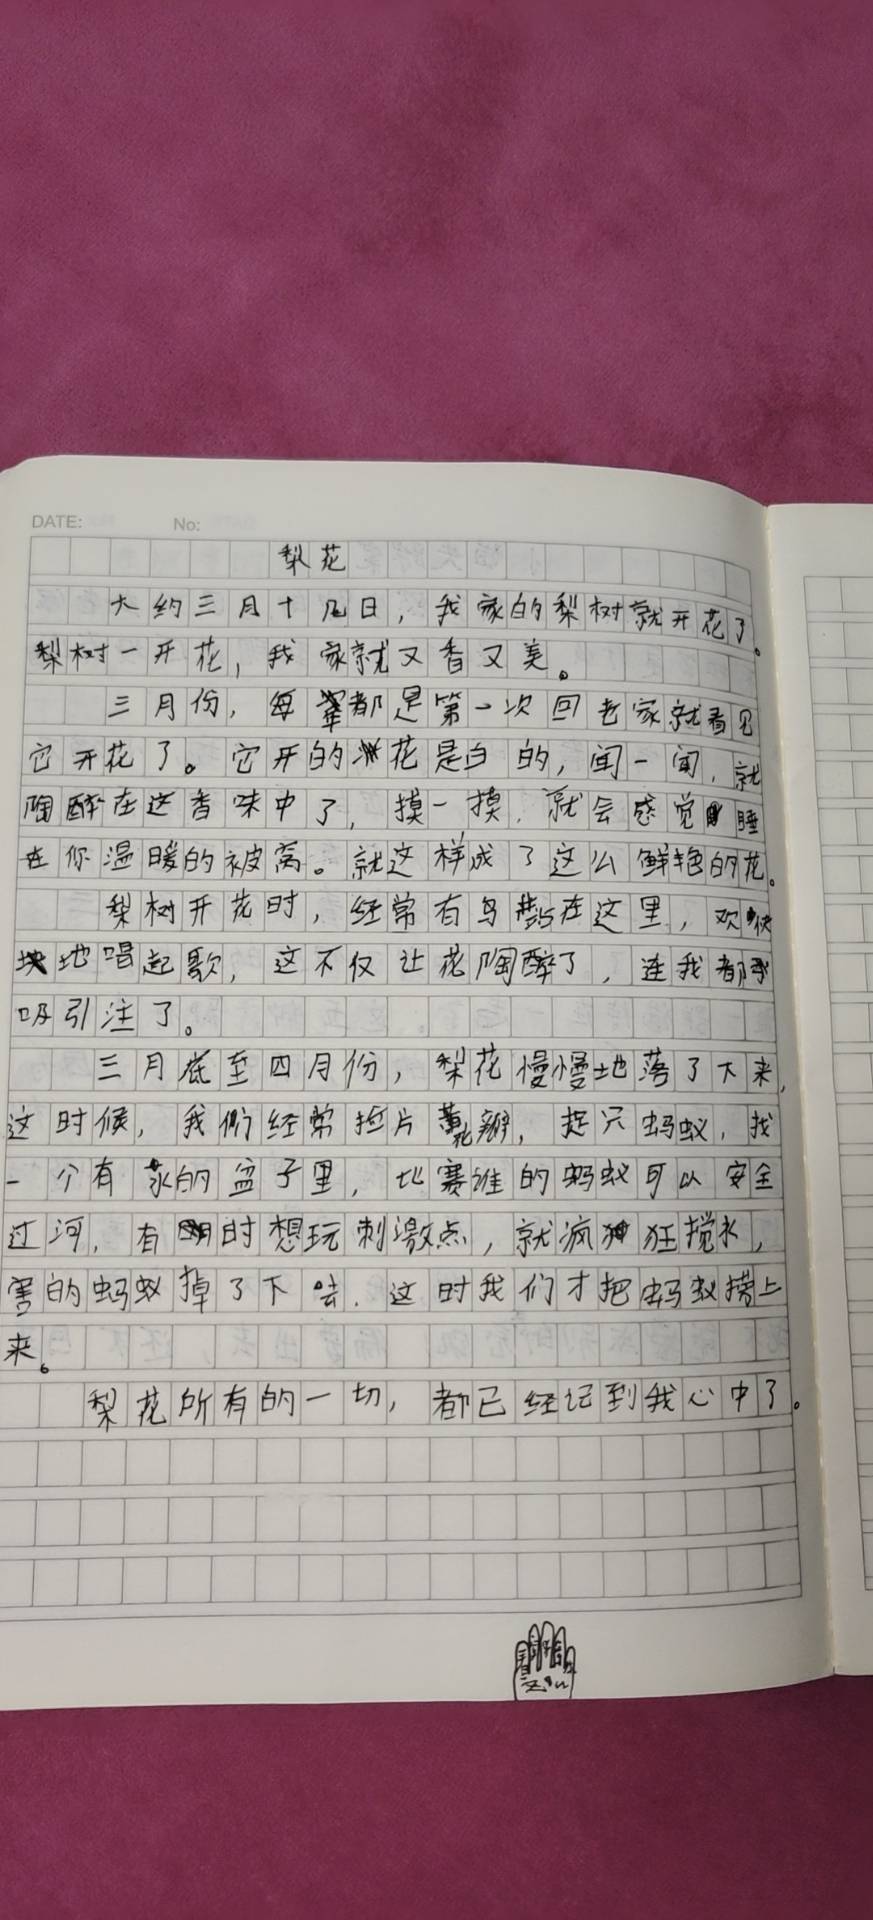 DATE: No:
梨花
大约三月十几日，我家的梨树就开花了。
梨树一开花，我家就又香又美。
三月份，每都是第一次回老家就看见
它开花了。它开的花是白的，闻一闻，就
陶醉在这香味中了，摸一摸，就会感觉睡
在你温暖的被窝。就这样成了这么鲜艳的花。
梨树开花时，经常有鸟在这里，欢快
地唱起歌，这不仅让花陶醉了，连我都
吸引注了。
三月底至四月份，梨花慢慢地落了下来，
这时候，我们经常捡片花瓣，捉只蚂蚁，找
一个有水的盆子里，比赛谁的蚂蚁可以安全
过河，有时想玩刺激点，就疯狂搅水，
害的蚂蚁掉了下去，这时我们才把蚂蚁捞上
来。
梨花所有的一切，都已经记到我心中了。